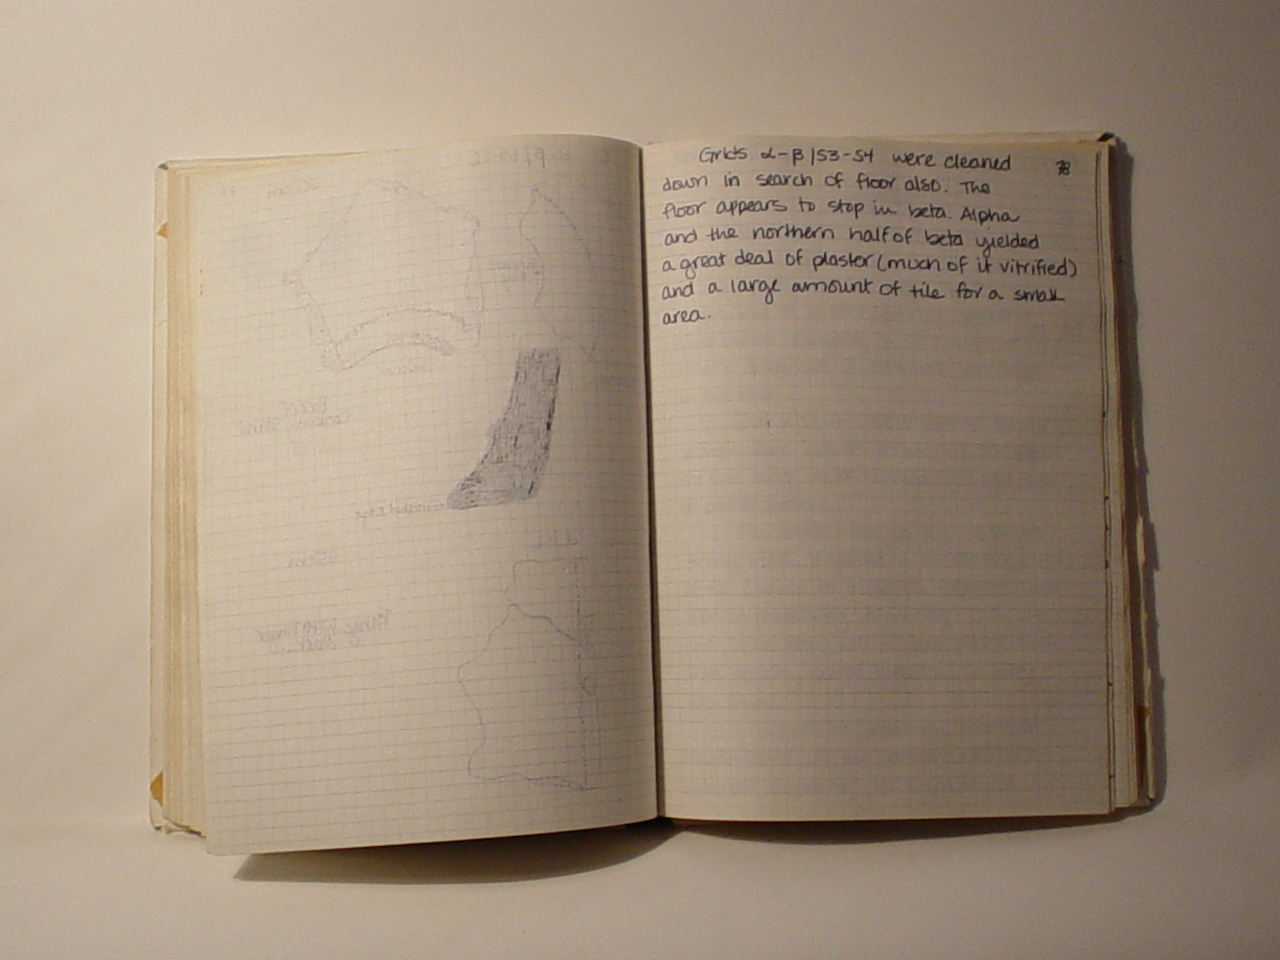 Grids α-β/53-54 were cleaned
78
down in search of floor also. The
floor appears to stop in beta. Alpha
and the northern half of beta yielded
a great deal of plaster (much of it vitrified)
and a large amount of tile for a small
area.